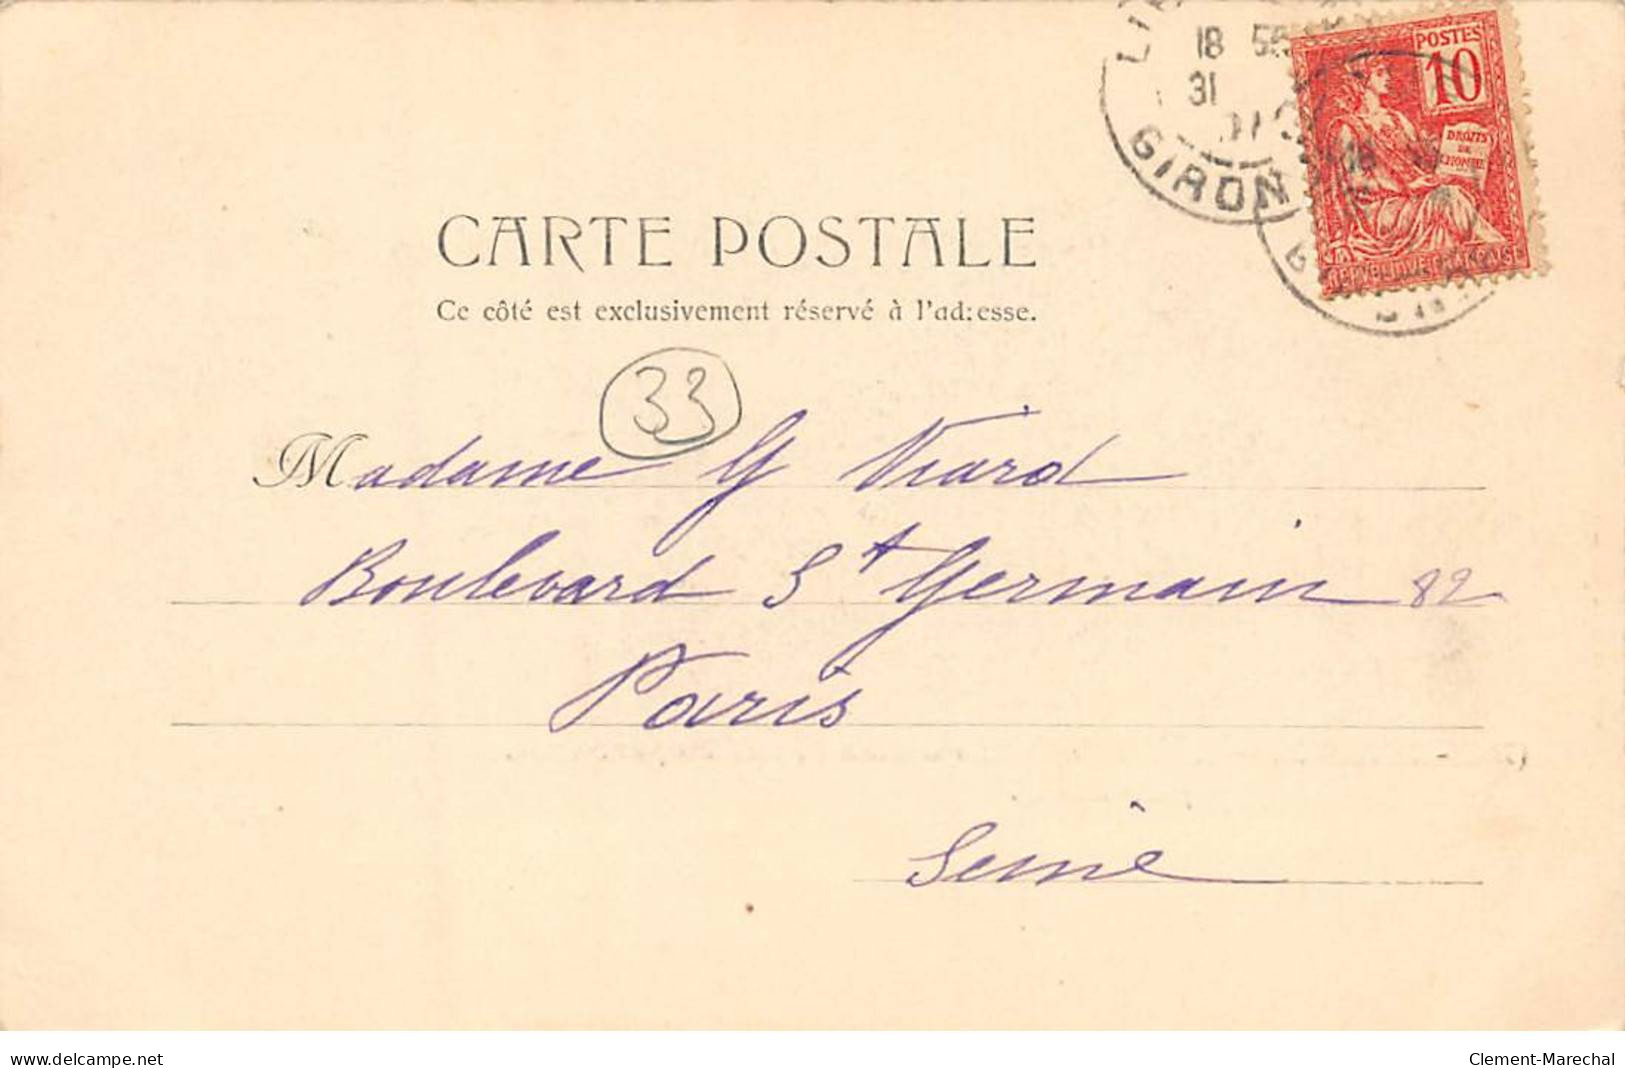 18
31
GIRON
POSTES
10
DROITS
DE
L'HOMME
CARTE POSTALE
Ce côté est exclusivement réservé à l'adresse.
33
Madame G Viard
Boulevard St Germain 82
Paris
Seine
www.delcampe.net
Clement-Marechal